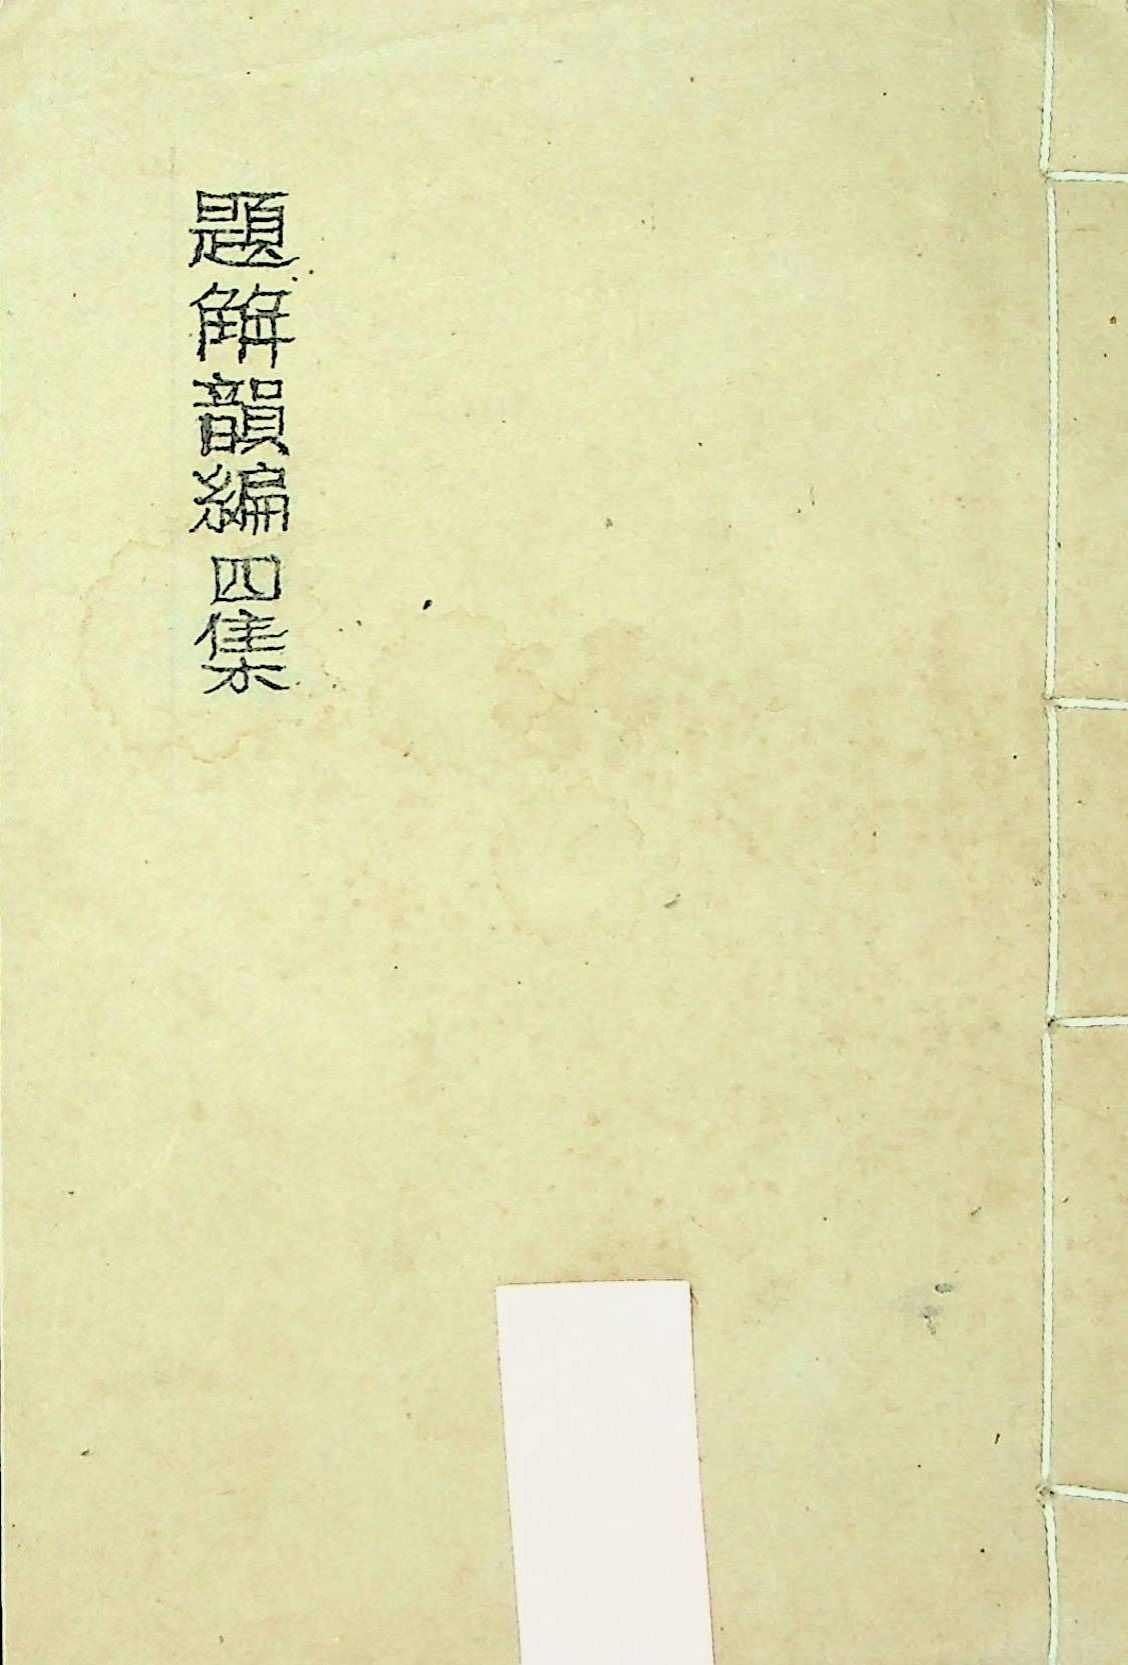 題解韻編四集